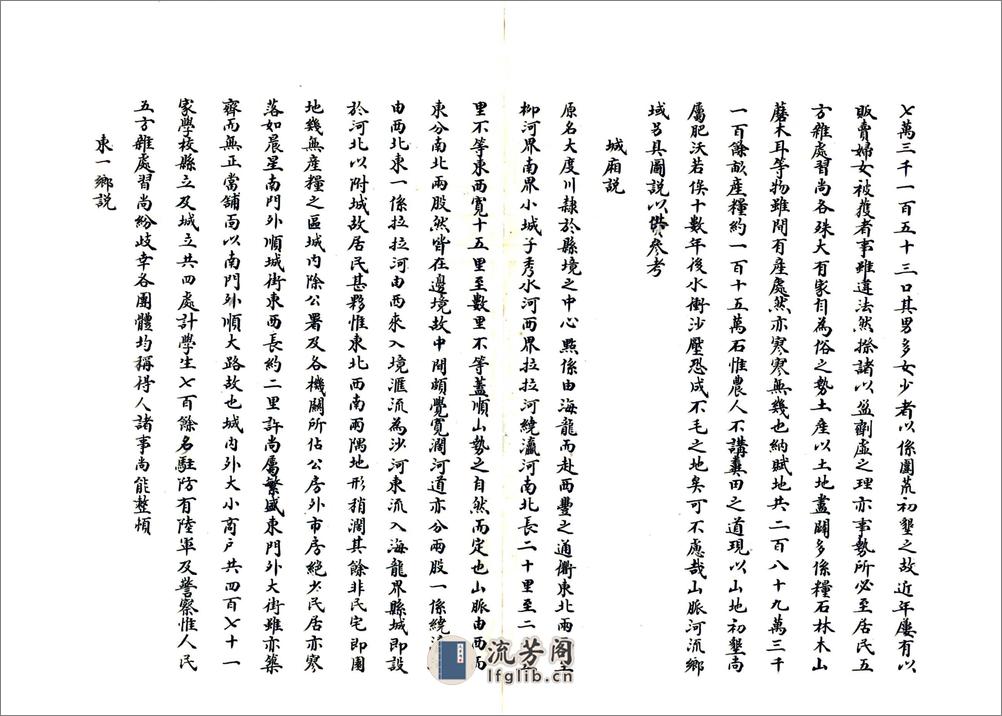 七萬三千一百五十三口其男多女少者以係圍荒初墾之故近年屢有以
販賣婦女被獲者事雖違法然揆諸以盈劑虛之理亦事勢所必至居民五
方雜處習尚各殊大有家自為俗之勢土產以土地盡闢多係糧石林木山
蘑木耳等物雖間有產處然亦寥寥無幾也納賦地共二百八十九萬三千
一百餘畝產糧約一百十五萬石惟農人不講糞田之道現以山地初墾尚
屬肥沃若俟十數年後水衝沙壓恐成不毛之地矣可不慮哉山脈河流鄉
域另具圖說以供參考
城廂說
原名大度川隸於縣境之中心點係由海龍而赴西豐之通衢東北兩
柳河界南界小城子秀水河西界拉拉河繞瀛河南北長二十里至二
里不等東西寬十五里至數里不等蓋順山勢之自然而定也山脈由西而
東分南北兩股然皆在邊境故中間頗覺寬濶河道亦分兩股一係繞
由西北東一係拉拉河由西來入境滙流為沙河東流入海龍界縣城即設
於河北以附城故居民甚夥惟東北西南兩隅地形稍濶其餘非民宅即園
地幾無產糧之區城內除公署及各機關所佔公房外市房絶少民居亦寥
落如晨星南門外順城街東西長約二里許尚屬繁盛東門外大街雖亦築
齊而無正當舖面以南門外順大路故也城內外大小商戶共四百七十一
家學校縣立及城立共四處計學生七百餘名駐防有陸軍及警察惟人民
五方雜處習尚紛歧幸各團體均稱得人諸事尚能整頓
東一鄉說
流芳阁
lfglib.cn